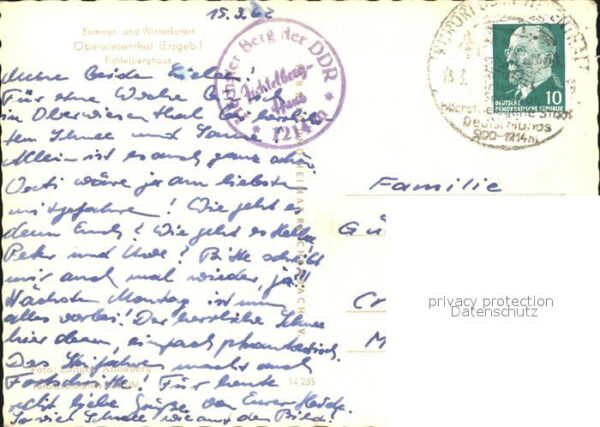 15.3.62
Sommer- und Winterkurort
Oberwiesenthal (Erzgeb.)
Fichtelberghaus
Meine beiden Lieben!
Für eine Woche bin ich
in Oberwiesenthal bei herrlich-
sten Schnee und Sonne.
Allein ist es auch ganz schön.
Vati wäre ja am liebsten
mitgefahren! Wie geht es
denn Euch? Wie geht es
Peter und Uwe? Bitte schreibt
mir auch mal wieder, ja!!!
Nächsten Montag ist nun
alles vorbei! Der herrliche Schnee
hier oben, einfach phantastisch.
Das Skifahren macht auch
Fortschritte! Für heute
recht liebe Grüße von Eurer Heide.
Soviel Schnee wie auf dem Bild!
Berg der DDR
Fichtelberg-
haus
1214 m
10
DEUTSCHE
DEMOKRATISCHE REPUBLIK
Deutschlands
900-1214m
Familie
Gü
Cr
M
privacy protection
Datenschutz
Foto: Annaberg
14 235